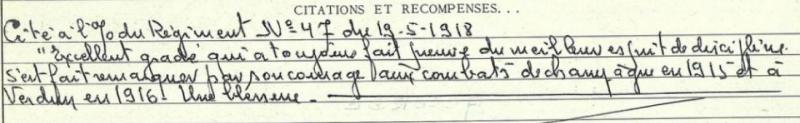 CITATIONS ET RECOMPENSES...
Cité à l'O du Régiment N° 47 du 19-5-1918
"Excellent gradé qui a toujours fait preuve du meilleur esprit de discipline.
S'est fait remarquer par son courage aux combats de champagne en 1915 et à
Verdun en 1916. Une blessure.